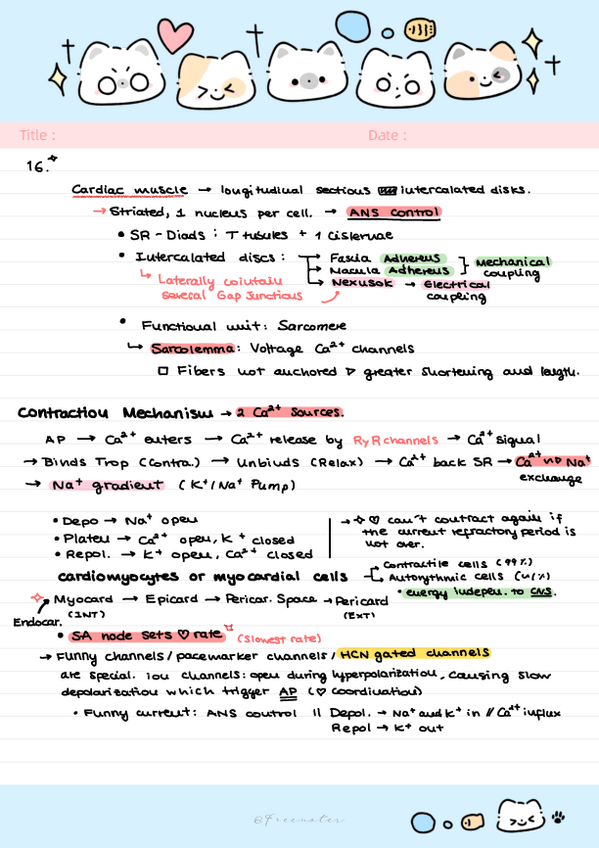 Title :
Date :
16.
Cardiac muscle → longitudiual sections intercalated disks.
→ Striated, 1 nucleus per cell. → ANS control
• SR - Diads : T tubules + 1 cisternae
• Intercalated discs : → Fascia Adhereus
→ Macula Adhereus } Mechanical coupling
→ Nexusok → Electrical coupling
↳ Laterally coiutaiu
several Gap Junctions
• Functional unit: Sarcomere
↳ Sarcolemma: Voltage Ca²⁺ channels
□ Fibers not anchored ▷ greater shortening and length.
Contraction Mechanism → 2 Ca²⁺ sources.
AP → Ca²⁺ enters → Ca²⁺ release by RyR channels → Ca²⁺ signal
→ Binds Trop (Contra.) → Unbinds (Relax) → Ca²⁺ back SR → Ca²⁺ Na⁺
exchange
→ Na⁺ gradient (K⁺/Na⁺ Pump)
• Depo → Na⁺ open
• Plateu → Ca²⁺ open, K⁺ closed
• Repol. → K⁺ open, Ca²⁺ closed
→ ♡ can't contract again if
the current refractory period is
not over.
cardiomyocytes or myocardial cells
Contractile cells (99%)
Autorythmic cells (1%)
• energy indepen. to CNS.
Myocard → Epicard → Pericar. Space → Pericard
Endocar. (INT) (EXT)
• SA node sets ♡ rate (slowest rate)
→ Funny channels/pacemarker channels/HCN gated channels
are special. ion channels: open during hyperpolarization, causing slow
depolarization which trigger AP (♡ coordination)
• Funny current: ANS control || Depol. → Na⁺ and K⁺ in // Ca²⁺ influx
Repol → K⁺ out